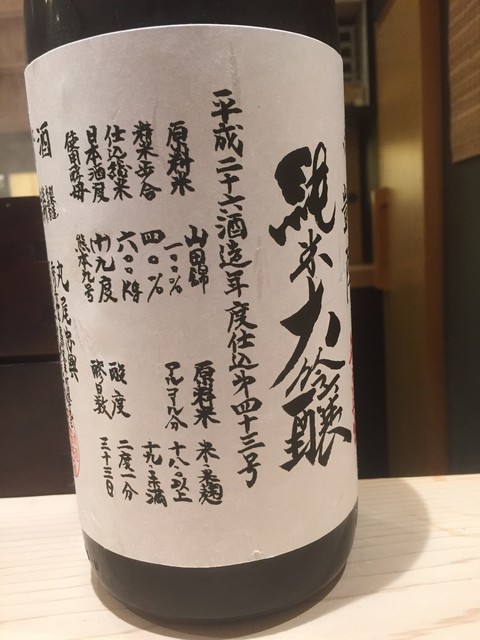 純米大吟醸
平成二十六酒造年度仕込第四十三号
原料米 山田錦 一〇〇%
精米歩合 四〇%
仕込総米 六〇〇kg
日本酒度 (+)九度
使用酵母 熊本九号
原料米 米・米麹
アルコール分 十八.〇以上
十九.〇未満
酸度 二度一分
醪日数 三十三日
酒